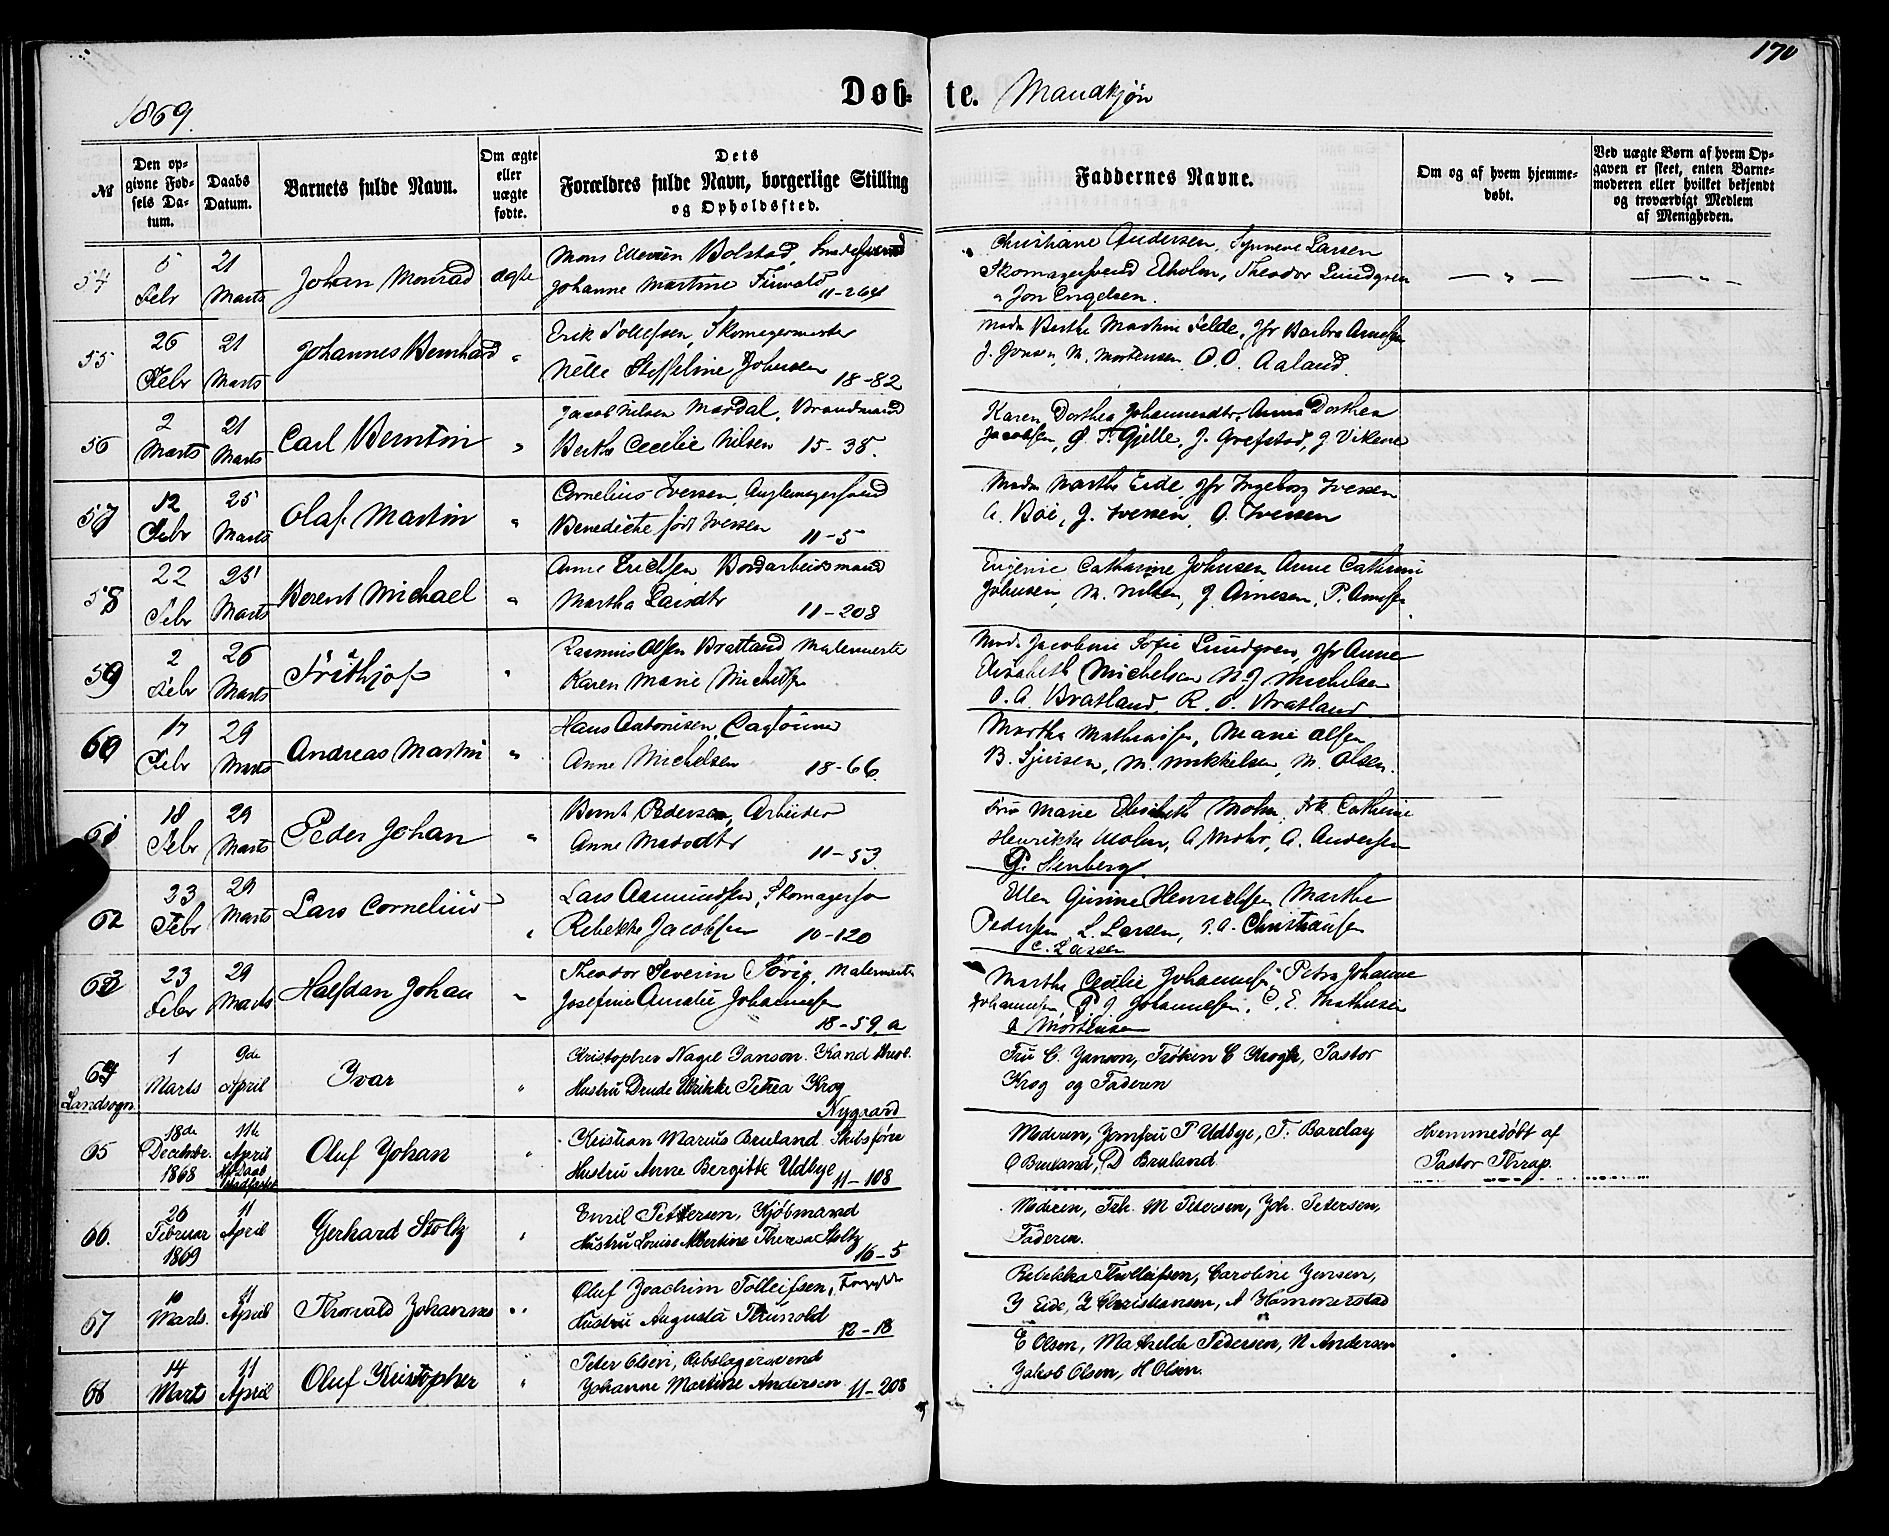 170
1869.
Døb-te. Mandkjøn
№
Den opgivne Fødsels Datum.
Daabs Datum.
Barnets fulde Navn.
Om ægte eller uægte fødte.
Dets Forældres fulde Navn, borgerlige Stilling og Opholdssted.
Faddernes Navne.
Om og af hvem hjemmedøbt.
Ved uægte Børn af hvem Opgaven er skeet, enten Barnemoderen eller hvilket bekjendt og troværdigt Medlem af Menigheden.
54
5 Febr
21 Marts
Johan Monrad
ægte
Mons Ellevsen Bolstad,
Johanne Martine 11-264
Christiane Andersen, Synneve Larsen
Skomagersvend Ekholm, Theodor Lundgren
Jon Engelsen.
55
26 Febr
21 Marts
Johannes Bernhard
"
Erik Tollefsen, Skomagermester
Nille Steffeline Johnsen 18-82
Mad. Berthe Martine Felde, Jfr Barbra
J. Jonsen, M. Mortensen, O. O. Aaland.
56
2 Marts
21 Marts
Carl Berntin
"
Jacob Nilsen Mardal, Brandmand
Berthe Cecilie Nilsen 15-38.
Karen Dorthea Johannesdtr, Anna Dorthea
Jacobsen, J. Grefstad, J Vikene
57
12 Febr
25 Marts
Olaf Martin
"
Cornelius Iversen,
Benedicte født Iversen 11-5
Mad. Marthe Eide, Jfr Ingeborg Iversen
A. Bøe, J. Iversen, O. Iversen
58
22 Febr
25 Marts
Berent Michael
"
Arne Erichsen Bordarbeidsmand
Martha Larsdtr 11-208
Eugenie Catharine Johnsen, Anne Cathrine
Johnsen, M. Nilsen, J. Arnesen, P. Arnesen
59
2 Febr
26 Marts
Frithjof
"
Rasmus Olsen Bratland Malermester
Karen Marie Michelsen
Mad. Jacobine Sofie Lundgren, Jfr Anne
Elisabeth Michelsen N. J. Michelsen
O. A. Bratland, R. O. Bratland
60
17 Febr
29 Marts
Andreas Martin
"
Hans Antonisen,
Anne Michelsen 18-66.
Martha Mathiasen, Marie Olsen
B. Sjursen, M. Mikkelsen, M. Olsen.
61
18 Febr
29 Marts
Peder Johan
"
Bernt Pedersen, Arbeider
Anne Madsdtr 11-53
Fru Marie Elisabeth Mohn, Frk. Cathrine
Henrikke Mohn, A Mohr, A. Andersen
P. Stenberg.
62
23 Febr
29 Marts
Lars Cornelius
"
Lars Aamundsen, Skomagersv
Rebekke Jacobsen 10-120
Ellen Gurine Henrichsen Marthe
Pedersen, L. Larsen, Christiansen
C. Larsen
63
23 Febr
29 Marts
Halfdan Johan
"
Theodor Severin Sørig, Malermester
Josefine Amalie Johannesen
18-59.a
Marthe Cecilie Johannesen, Petra Johanne
Johannesen, P. J. Johannesen, C. E. Mathiesen
J Mortensen
64
Landsogn
1 Marts
9de April
Ivar
"
Kristopher Nagel Janson. Kand theol.
Hustru Drude Ulrikke Petrea Krog
Nygaard
Fru C. Janson, Frøken C Krogh, Pastor
Krog og Faderen
65
18de Decembr. 1868
11te April
Oluf Johan
"
Kristian Marius Bruland. Skibsfører
Hustru Anne Bergitte Udbye 11-108
Moderen, Jomfru P Udbye, T. Barclay
O Bruland, D Bruland
Hjemmedøbt af
Pastor Thrap.
66.
26 Februar 1869
11 April
Gerhard Stoltz
"
Emil Pettersen, Kjøbmand
Hustru Louise Albertine Theresa Stoltz
16-5
Moderen, Frk. M Petersen, Joh. Petersen,
Faderen.
67
10 Marts.
11 April
Thorvald Johannes
"
Oluf Joachim Tolleifsen,
Hustru Augusta Thunold 12-18
Rebekka Tholleifsen, Caroline Jensen,
J Eide, Z Christiansen, A Hammerstad
68
14 Marts
11 April
Oluf Kristopher
"
Peter Olsen, Rebslagersvend
Johanne Martine Andersen 11-208
E Olsen, Mathilde Pedersen, N Andersen
Jakob Olsen, H Olsen.